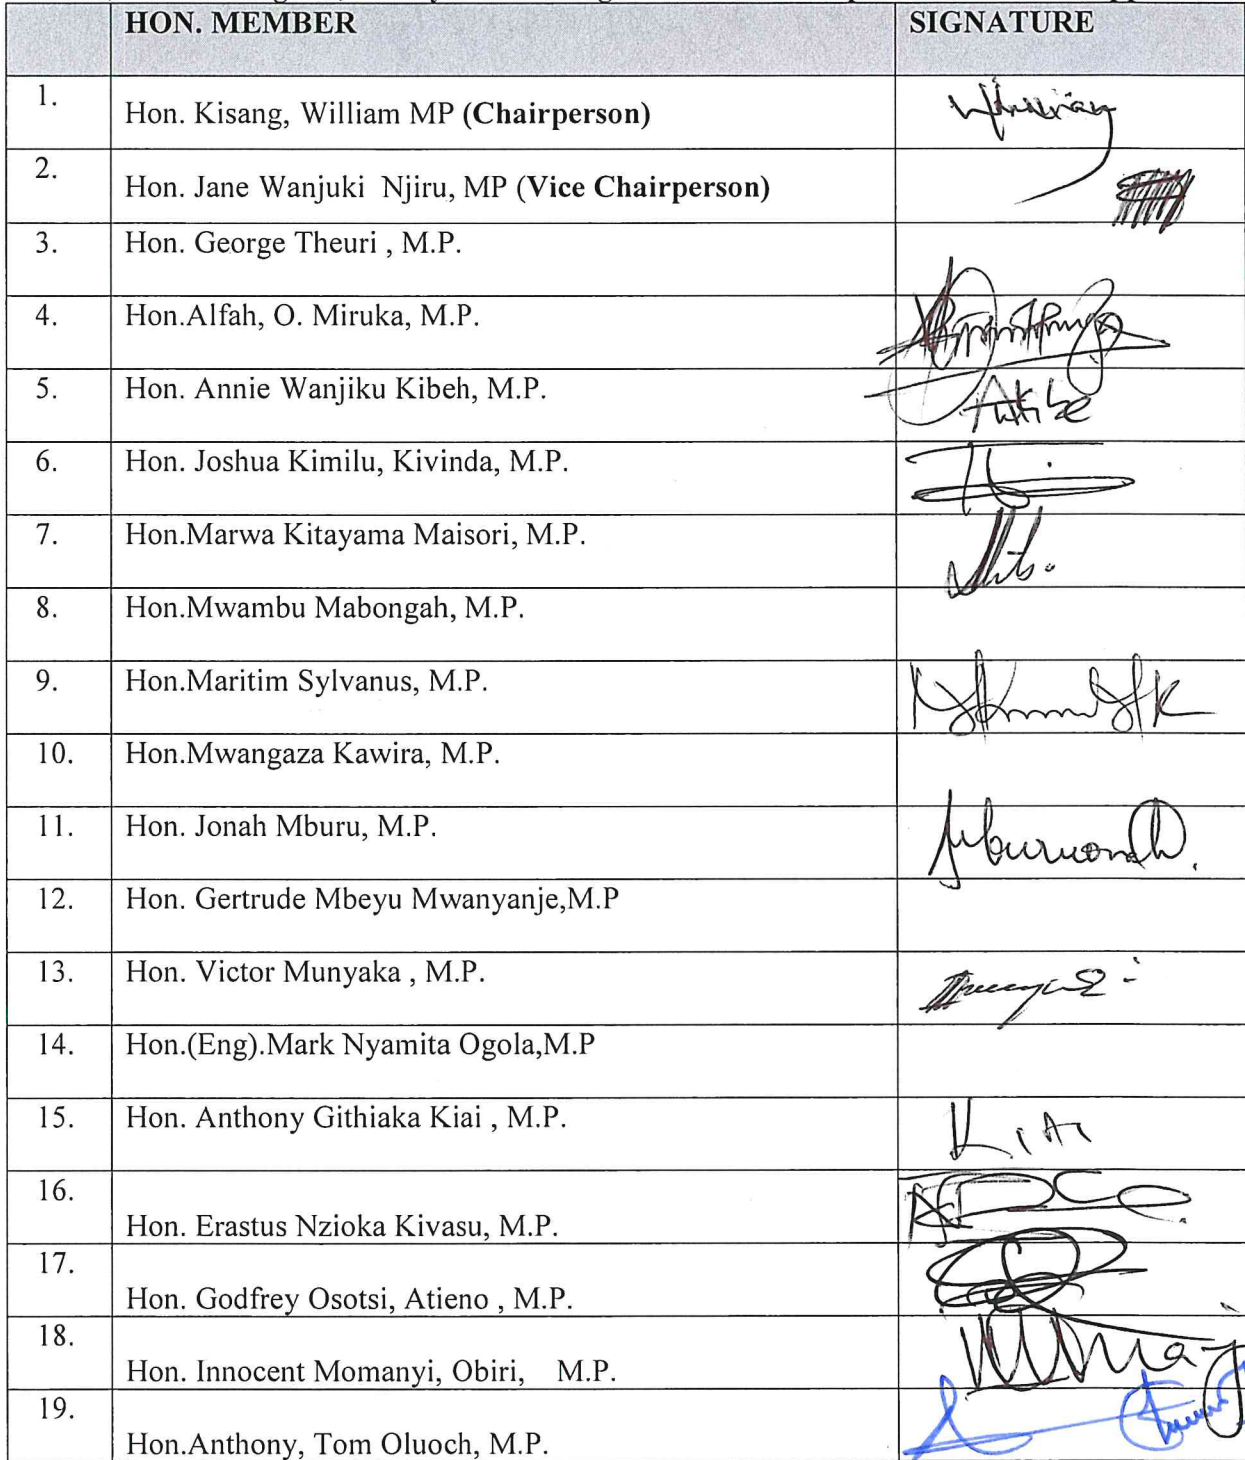 HON. MEMBER SIGNATURE
1. Hon. Kisang, William MP (Chairperson)
2. Hon. Jane Wanjuki Njiru, MP (Vice Chairperson)
3. Hon. George Theuri , M.P.
4. Hon.Alfah, O. Miruka, M.P.
5. Hon. Annie Wanjiku Kibeh, M.P.
6. Hon. Joshua Kimilu, Kivinda, M.P.
7. Hon.Marwa Kitayama Maisori, M.P.
8. Hon.Mwambu Mabongah, M.P.
9. Hon.Maritim Sylvanus, M.P.
10. Hon.Mwangaza Kawira, M.P.
11. Hon. Jonah Mburu, M.P.
12. Hon. Gertrude Mbeyu Mwanyanje,M.P
13. Hon. Victor Munyaka , M.P.
14. Hon.(Eng).Mark Nyamita Ogola,M.P
15. Hon. Anthony Githiaka Kiai , M.P.
16. Hon. Erastus Nzioka Kivasu, M.P.
17. Hon. Godfrey Osotsi, Atieno , M.P.
18. Hon. Innocent Momanyi, Obiri, M.P.
19. Hon.Anthony, Tom Oluoch, M.P.